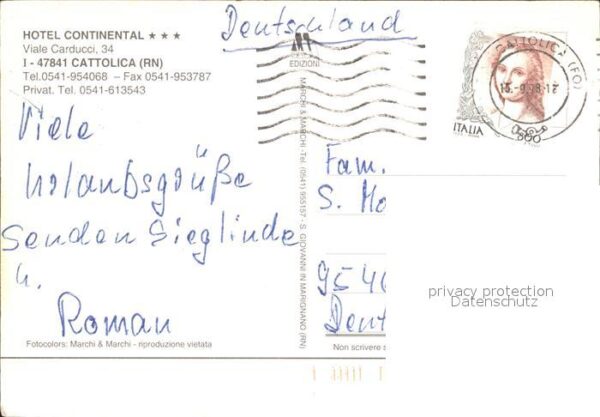 HOTEL CONTINENTAL ★ ★ ★
Viale Carducci, 34
I - 47841 CATTOLICA (RN)
Tel.0541-954068 – Fax 0541-953787
Privat. Tel. 0541-613543
Deutschland
EDIZIONI
MARCHI & MARCHI - Tel. (0541) 955157 - S. GIOVANNI IN MARIGNANO (RN)
CATTOLICA (FO)
15.-9.98.-17
ITALIA
800
Viele
Urlaubsgrüße
Senden Sieglinde
u.
Roman
Fam.
S. Mo
9546
Deut
privacy protection
Datenschutz
Fotocolors: Marchi & Marchi - riproduzione vietata
Non scrivere s